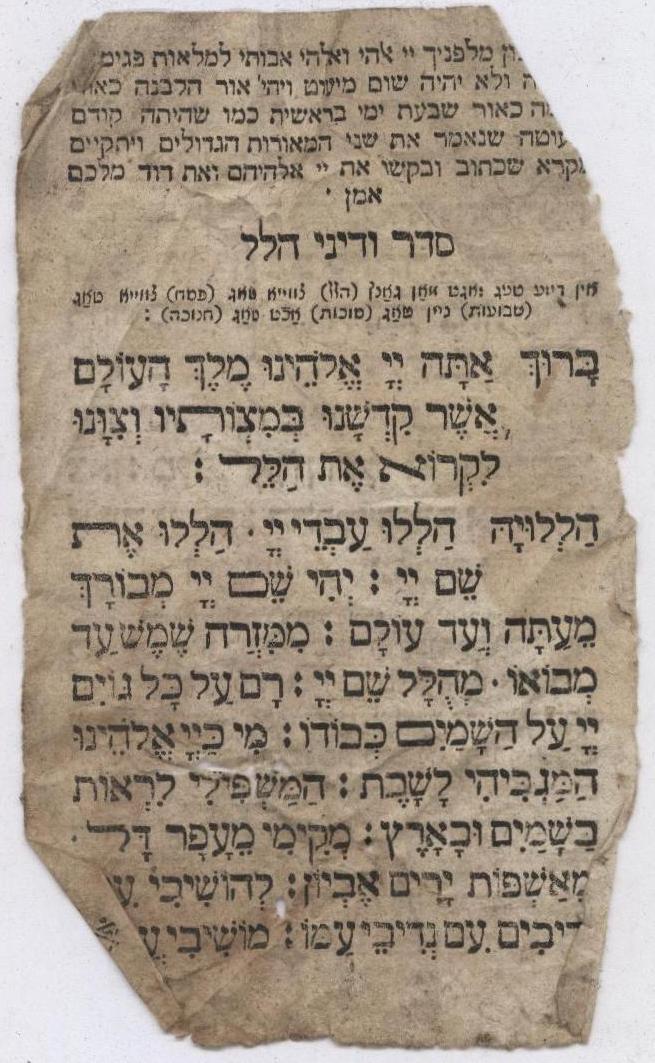 מלפניך יי אלהי ואלהי אבותי למלאות פגימ
ולא יהיה שום מיעוט ויהי אור הלבנה כאור
כאור שבעת ימי בראשית כמו שהיתה קודם
שנאמר את שני המאורות הגדולים ויתקיים
מקרא שכתוב ובקשו את יי אלהיהם ואת דוד מלכם
אמן
סדר ודיני הלל
אין דיזע טעג זאגט מאן גאנץ (הלל) צווייא טאג (פסח) צווייא טאג
(שבועות) ניין טאג (סוכות) אכט טאג (חנוכה) :
בָּרוּךְ אַתָּה יְיָ אֱלֹהֵינוּ מֶלֶךְ הָעוֹלָם
אֲשֶׁר קִדְּשָׁנוּ בְּמִצְוֹתָיו וְצִוָּנוּ
לִקְרוֹא אֶת הַלֵּל :
הַלְלוּיָהּ הַלְלוּ עַבְדֵי יְיָ . הַלְלוּ אֶת
שֵׁם יְיָ : יְהִי שֵׁם יְיָ מְבוֹרָךְ
מֵעַתָּה וְעַד עוֹלָם : מִמִּזְרַח שֶׁמֶשׁ עַד
מְבוֹאוֹ . מְהֻלָּל שֵׁם יְיָ : רָם עַל כָּל גּוֹיִם
יְיָ עַל הַשָּׁמַיִם כְּבוֹדוֹ : מִי כַּייָ אֱלֹהֵינוּ
הַמַּגְבִּיהִי לָשָׁבֶת : הַמַּשְׁפִּילִי לִרְאוֹת
בַּשָּׁמַיִם וּבָאָרֶץ : מְקִימִי מֵעָפָר דָּל .
מֵאַשְׁפּוֹת יָרִים אֶבְיוֹן : לְהוֹשִׁיבִי עִ
דִיבִים עִם נְדִיבֵי עַמּוֹ : מוֹשִׁיבִי עֲ